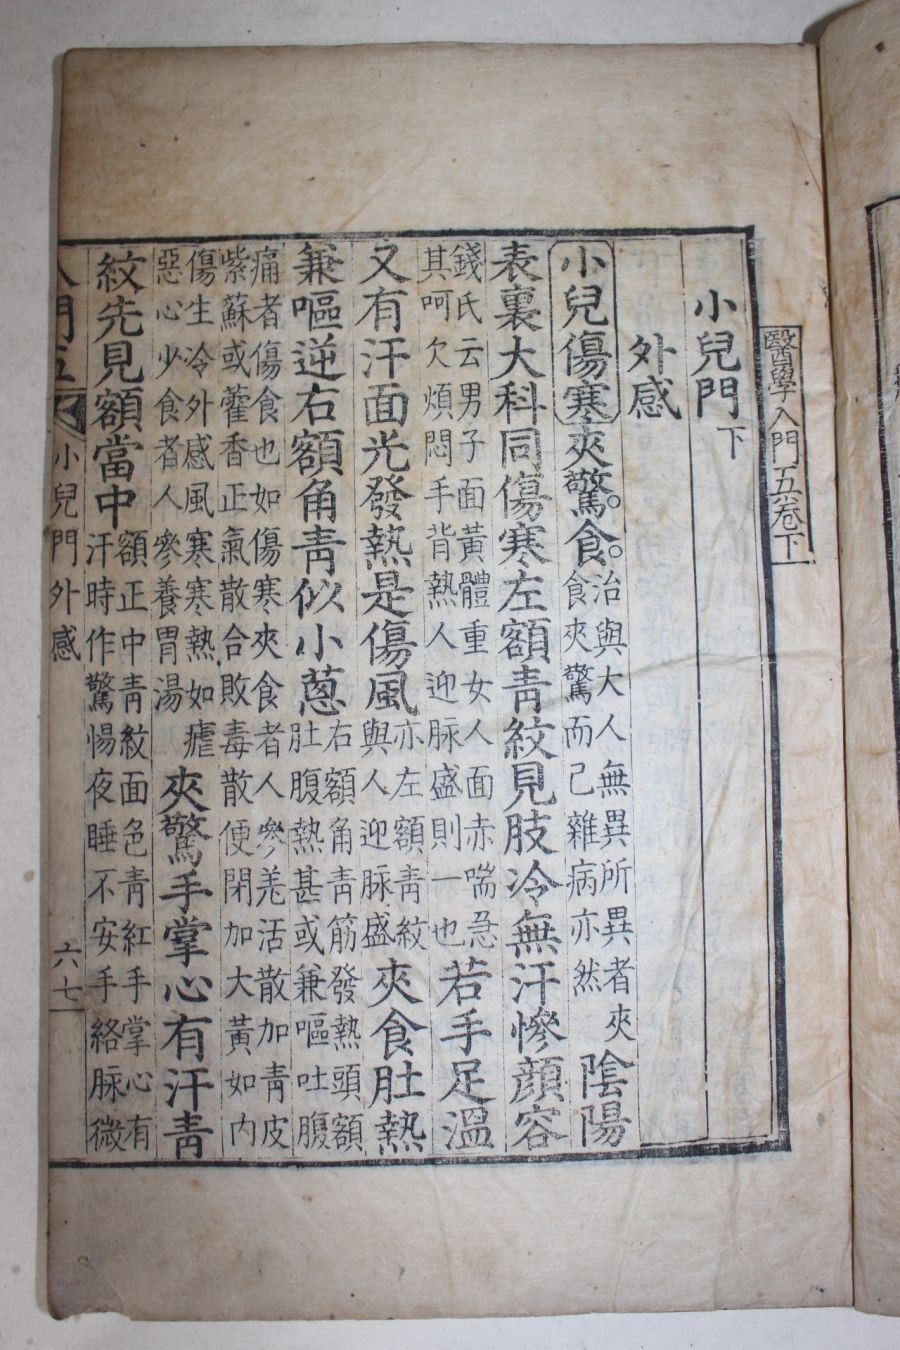 醫學入門五卷下
小兒門下
外感
小兒傷寒夾驚。食。治與大人無異所異者夾食夾驚而已雜病亦然陰陽
表裏大科同傷寒左額青紋見肢冷無汗慘顏容
錢氏云男子面黃體重女人面赤喘急其呵欠煩悶手背熱人迎脉盛則一也若手足溫
又有汗面光發熱是傷風亦左額青紋與人迎脉盛夾食肚熱
兼嘔逆右額角青似小蔥右額角青筋發熱頭額肚腹熱甚或兼嘔吐腹
痛者傷食也如傷寒夾食者人參羌活散加青皮紫蘇或藿香正氣散合敗毒散便閉加大黃如內
傷生冷外感風寒寒熱如瘧惡心少食者人參養胃湯夾驚手掌心有汗青
紋先見額當中額正中青紋面色青紅手掌心有汗時作驚惕夜睡不安手絡脉微
入門五 小兒門外感 六七